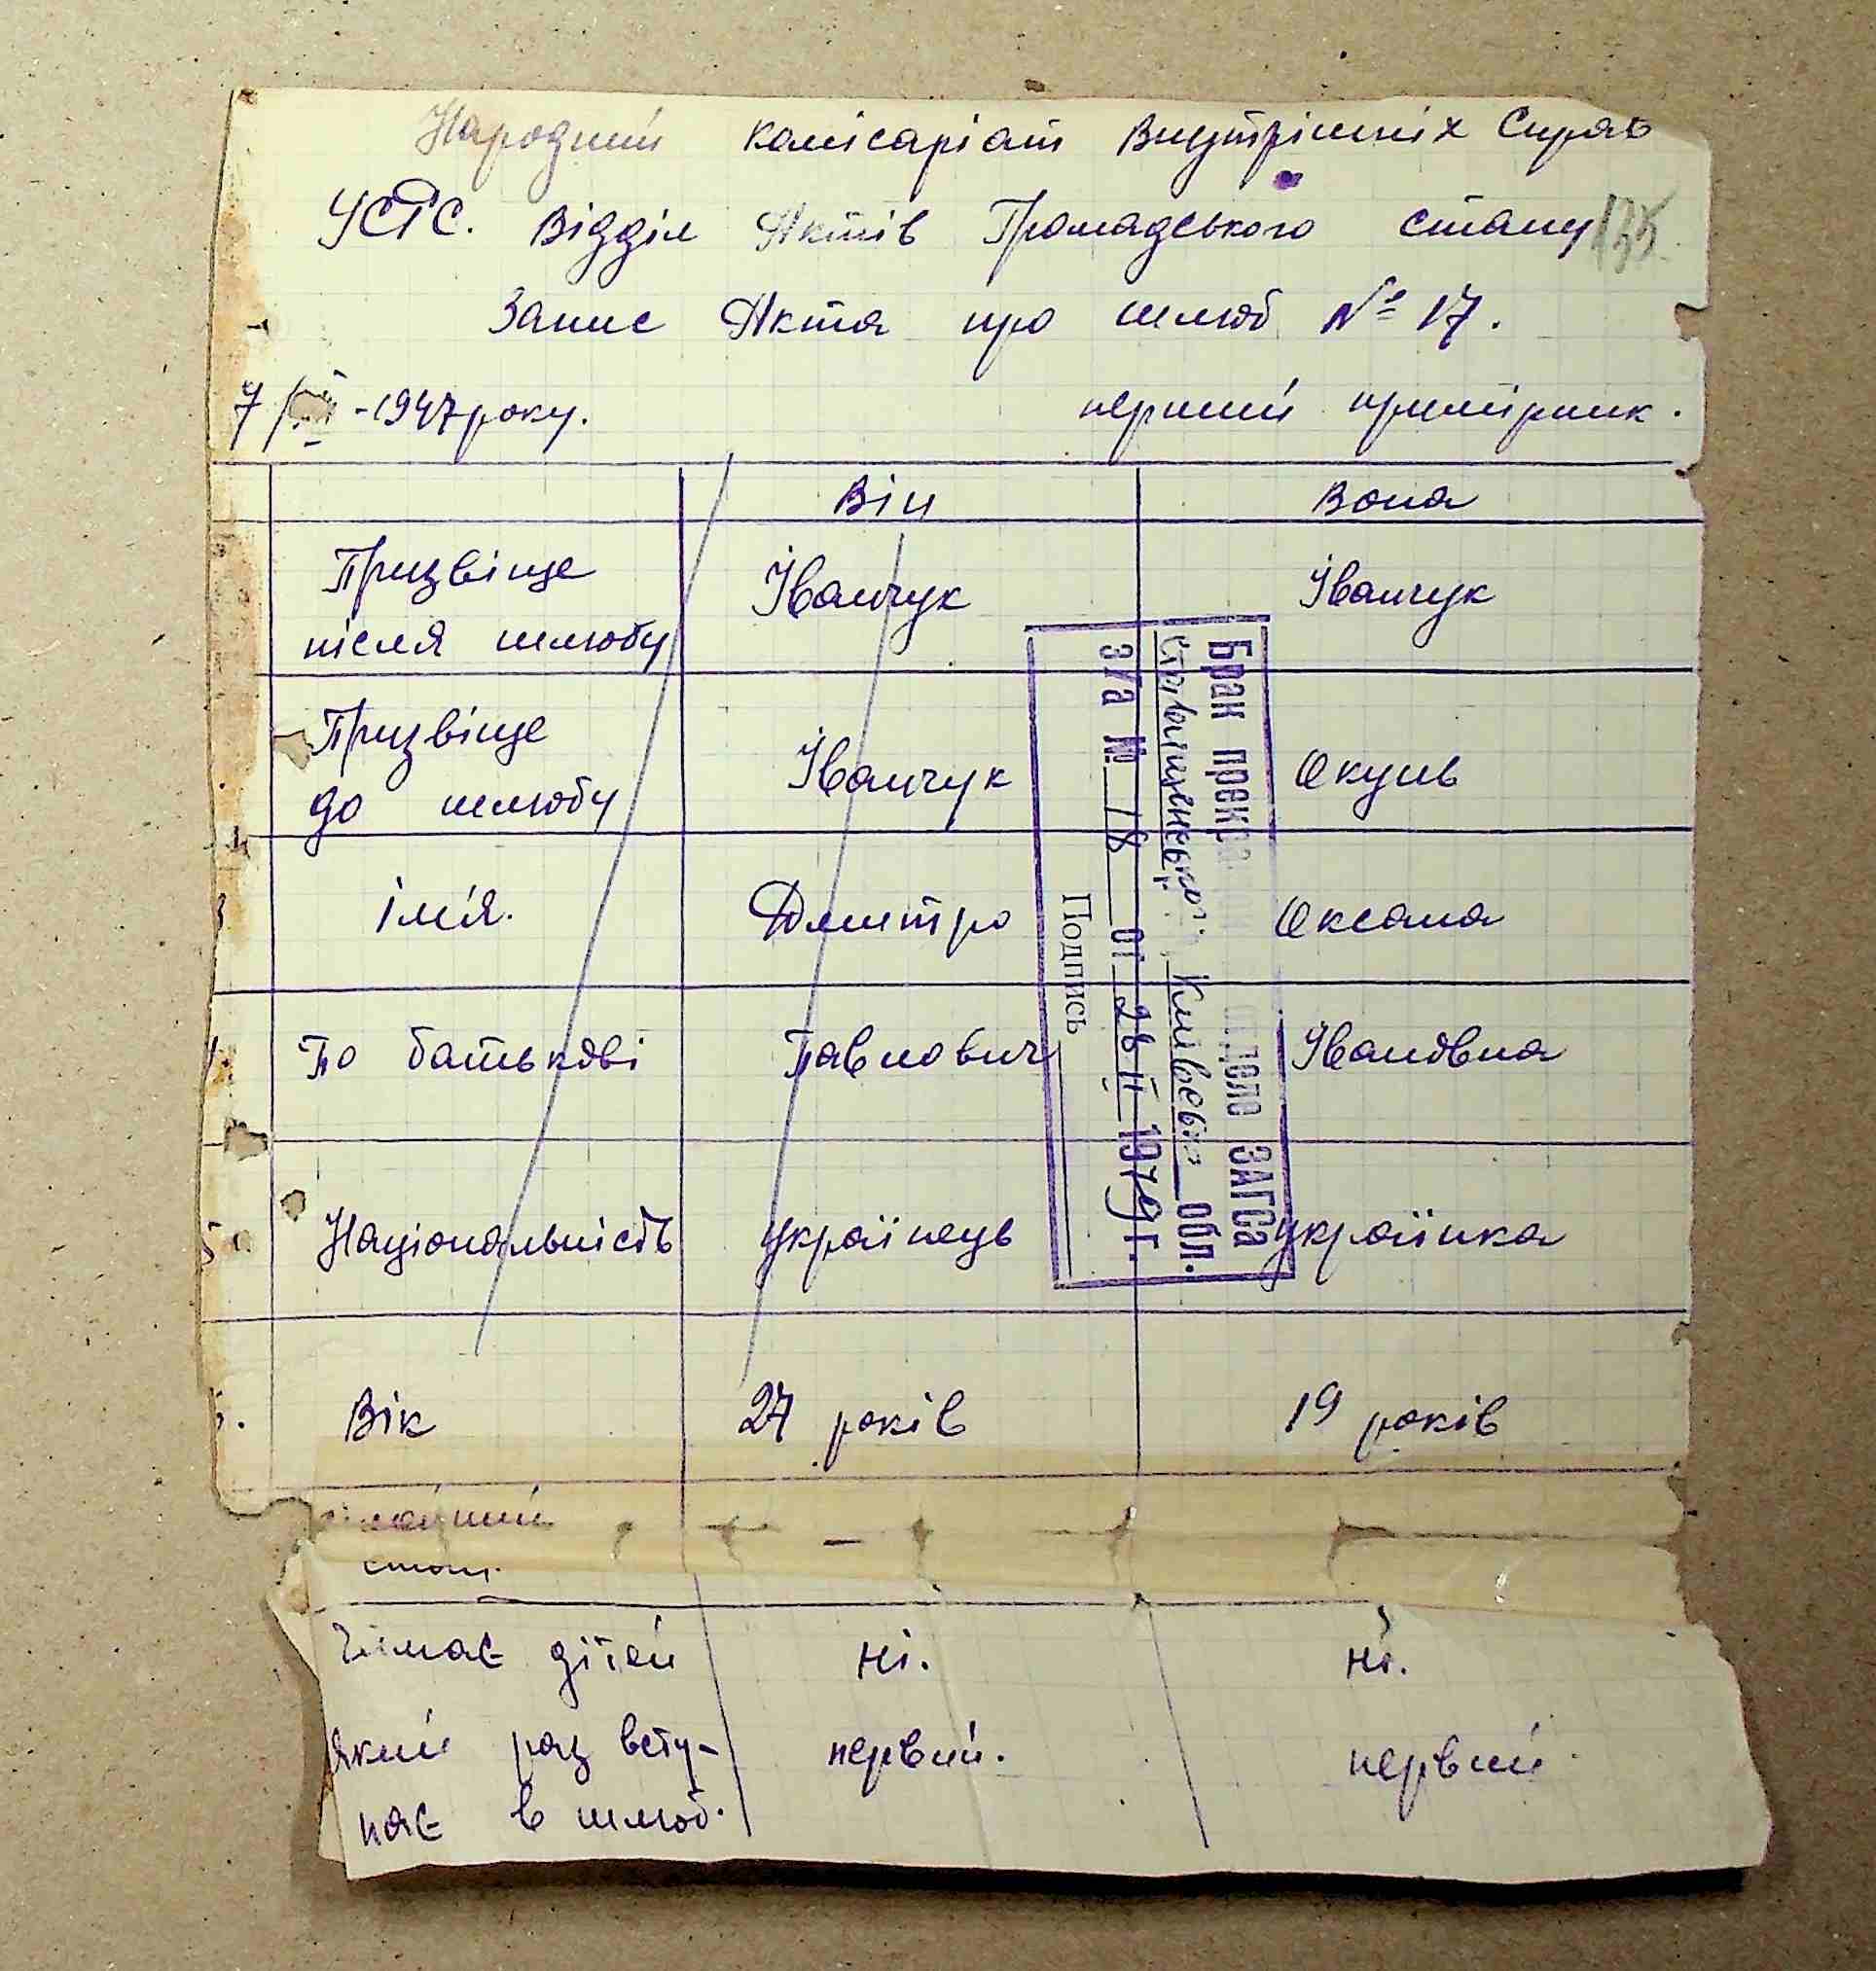 Народний комісаріат Внутрішніх Справ
УСРС. Відділ Актів Громадського стану 135
Запис Акта про шлюб № 17.
7/ -1947 року. перший примірник.
Він Вона
Призвіще
після шлюбу Іванчук Іванчук
Призвіще
до шлюбу Іванчук Окунь
імя. Дмитро Оксана
По батькові Павлович Івановна
Національність українець українка
Вік 27 років 19 років
стан. –
Чи має дітей ні. ні.
Який раз всту- первий. первий
пає в шлюб.
Брак отделе ЗАГСа
Київська обл.
З/а № 18 от 28 II 1979 г.
Подпись